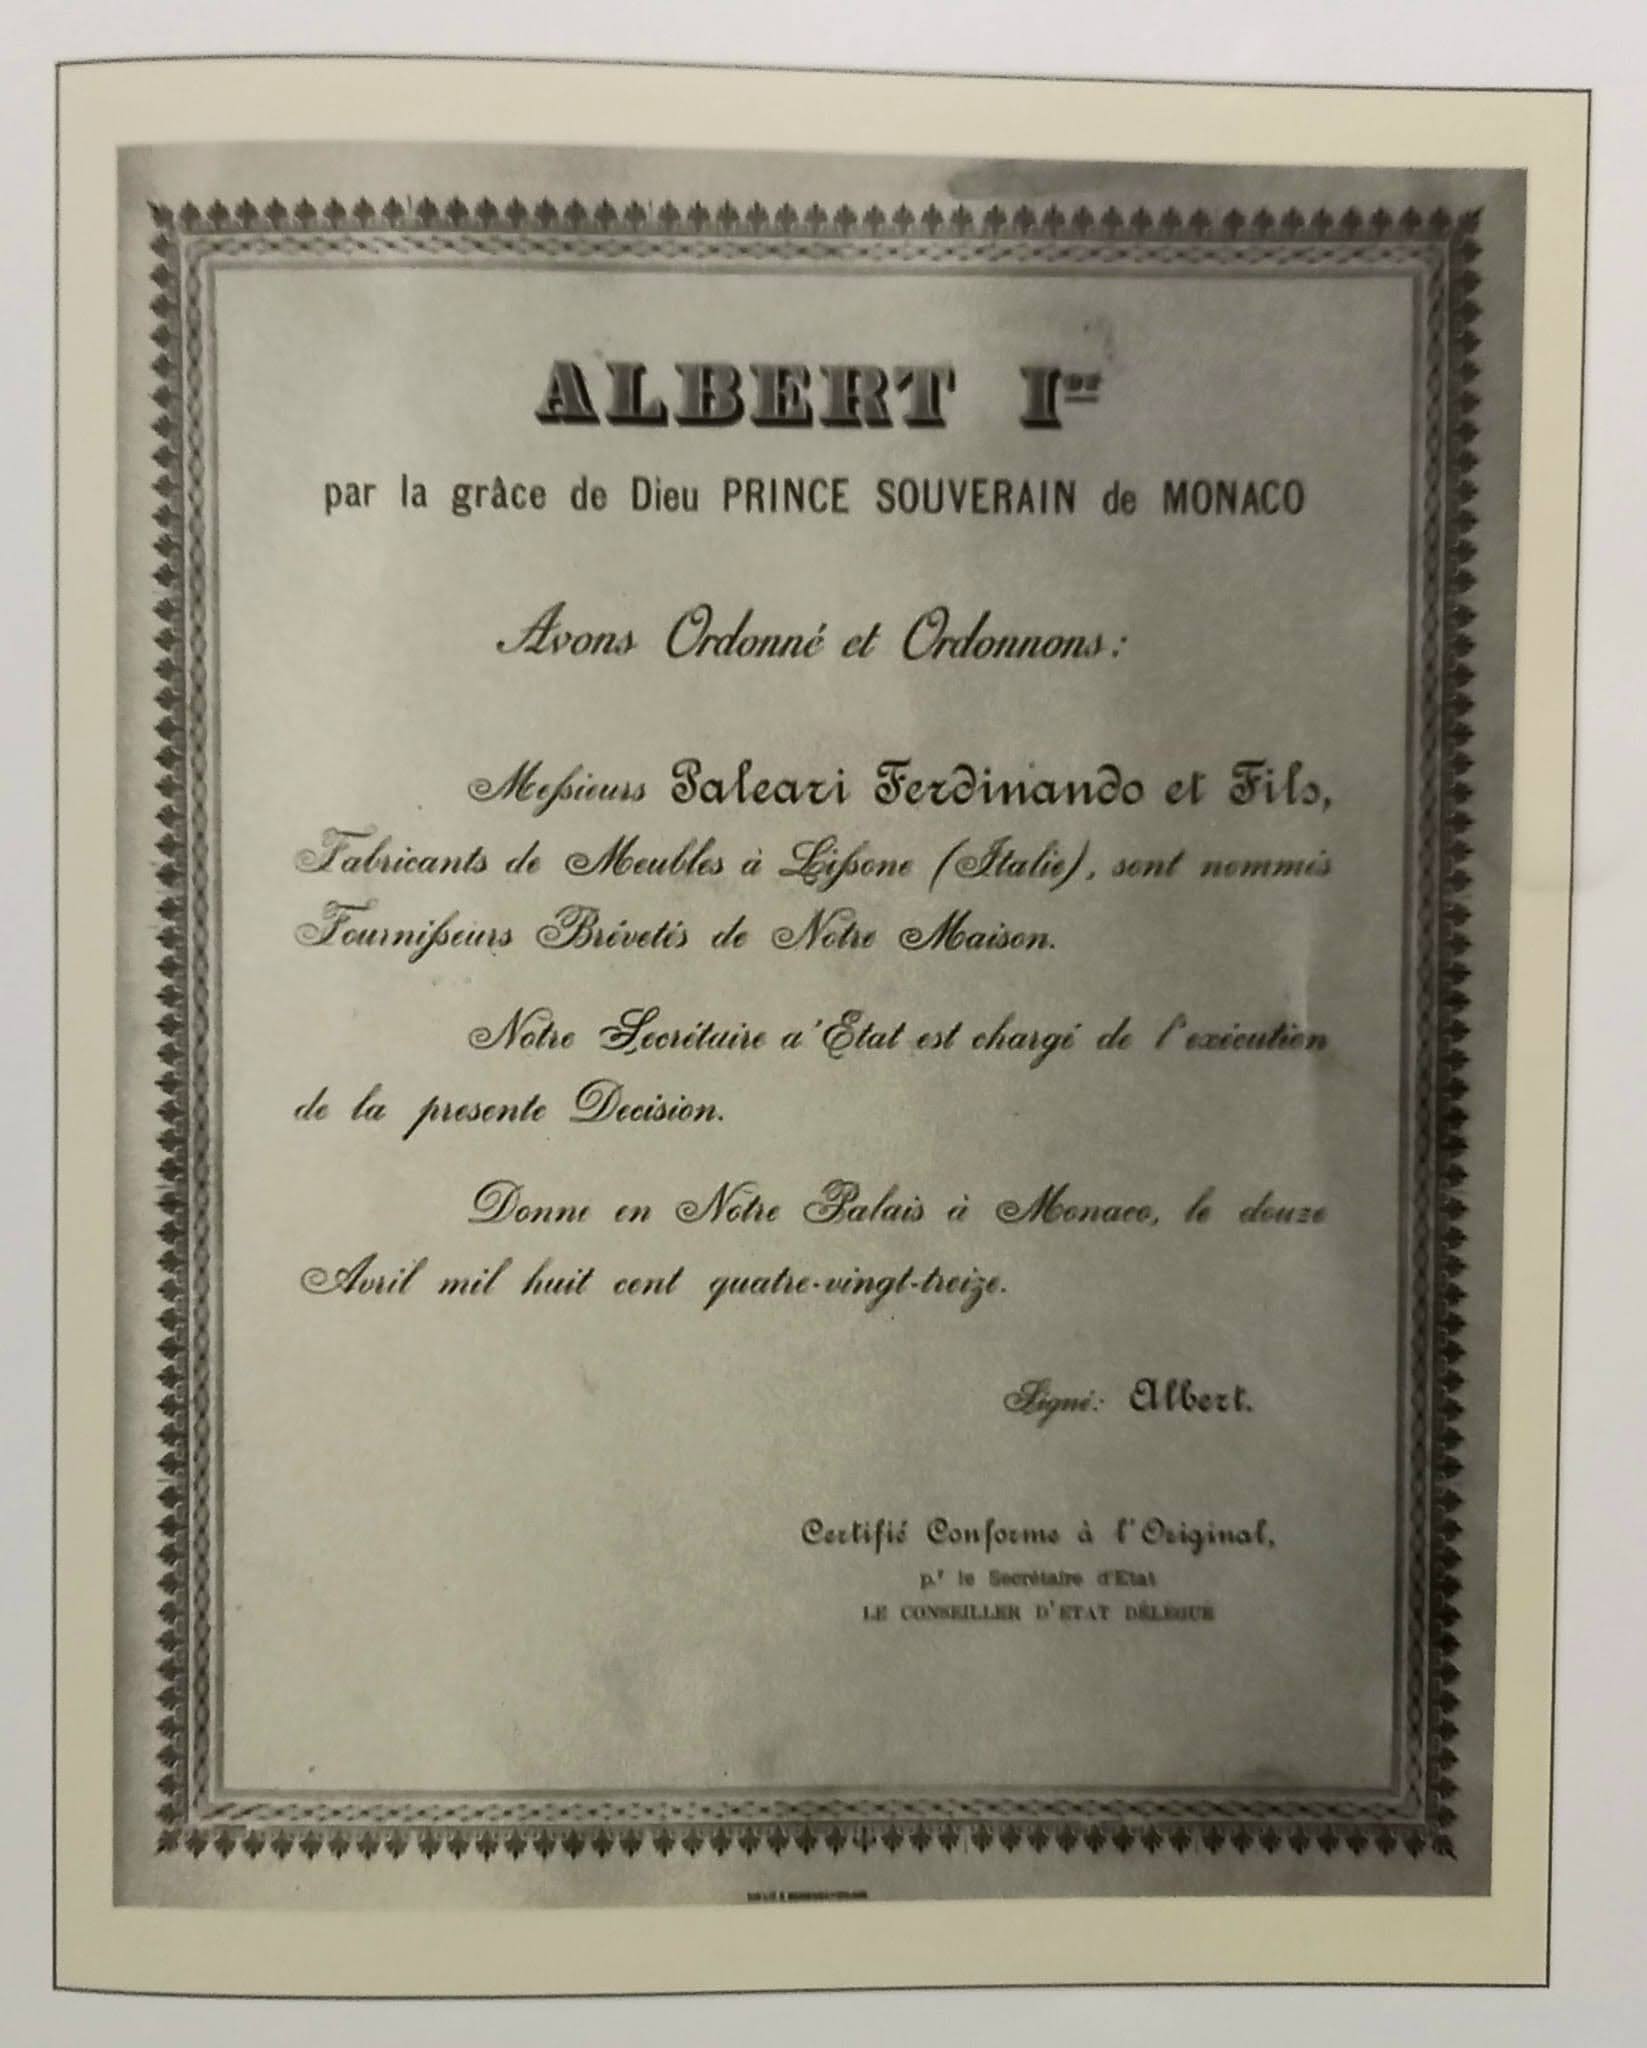 ALBERT Ier
par la grâce de Dieu PRINCE SOUVERAIN de MONACO
Avons Ordonné et Ordonnons:
Messieurs Paleari Ferdinando et Fils,
Fabricants de Meubles à Lissone (Italie), sont nommés
Fournisseurs Brévetés de Nôtre Maison.
Nôtre Secrétaire d'Etat est chargé de l'exécution
de la presente Decision.
Donne en Nôtre Palais à Monaco, le douze
Avril mil huit cent quatre-vingt-treize.
Signé: Albert.
Certifié Conforme à l'Original,
p.r le Secrétaire d'Etat
LE CONSEILLER D'ETAT DÉLÉGUÉ